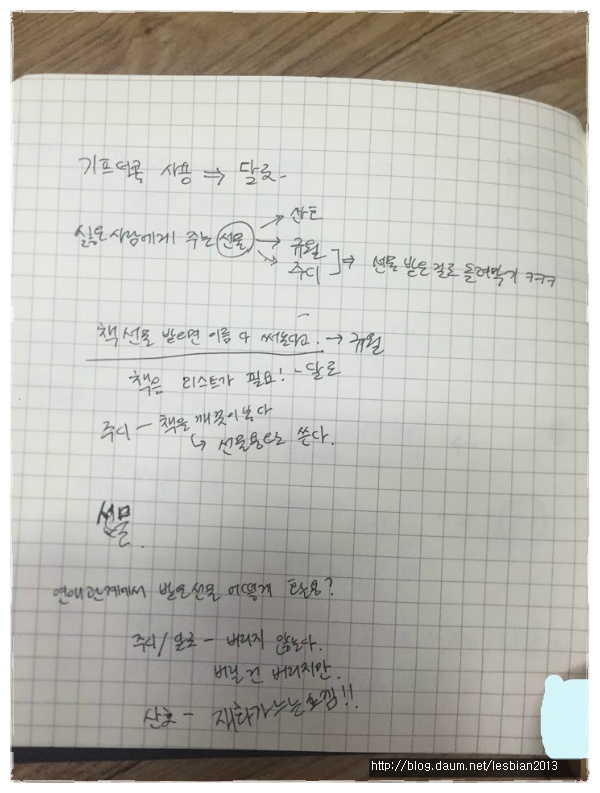 기프티콘 사용 ⇒ 달로-
싫은사람에게 주는 선물 → 산도
→ 규월
→ 주디 ] ⇒ 선물 받은걸로 돌려막기 ㅋㅋㅋ
책선물 받으면 이름 다 써놓는다고. → 규월
책은 리스트가 필요! - 달로
주디 - 책을 깨끗이 본다
↳ 선물용으로 쓴다.
선물
연애관계에서 받은선물 어떻게 하나요?
주디/달로 - 버리지 않는다.
버릴 건 버리지만.
- 재화가누는느낌!!
http://blog.daum.net/lesbian2013